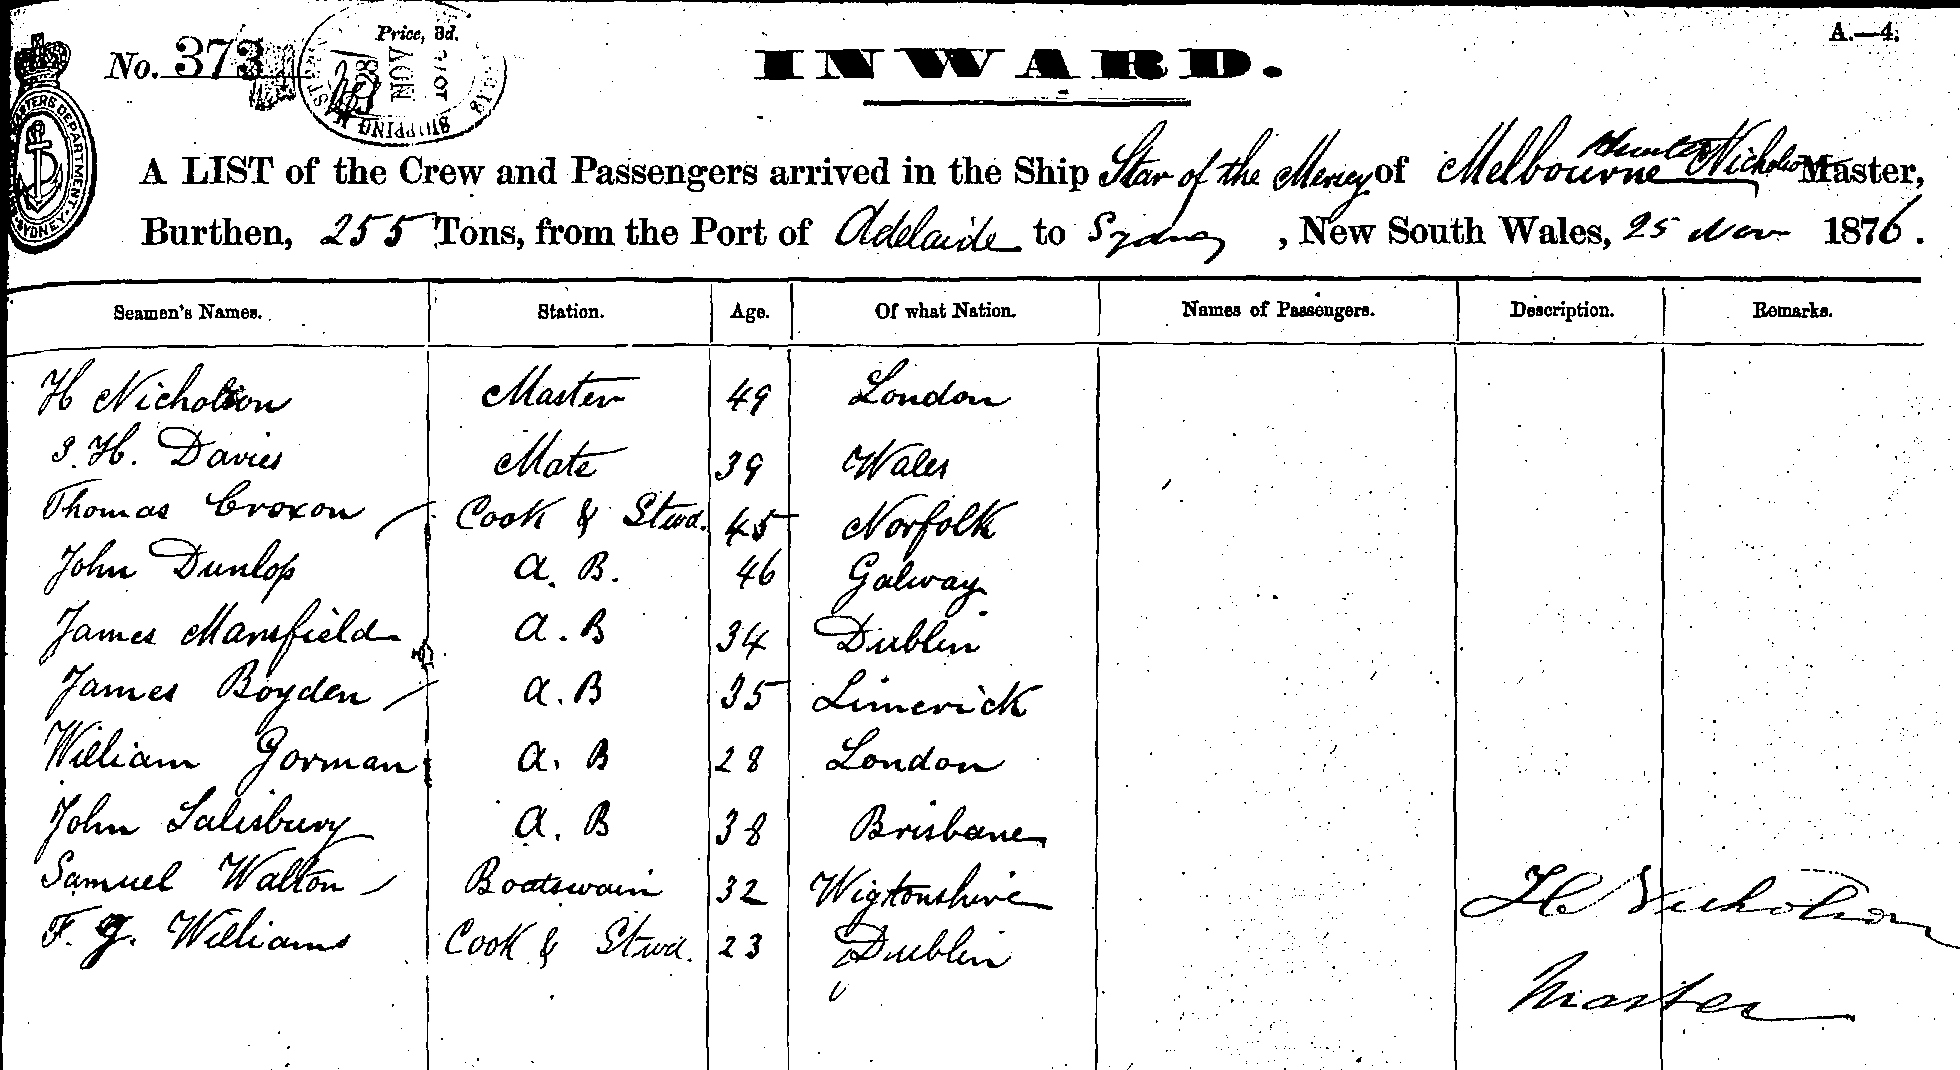 A.—4.
No. 373
Price, 3d.
SHIPPING MAST
NOV
INWARD.
A LIST of the Crew and Passengers arrived in the Ship Star of the Mersey of Melbourne Hunter Nicholson Master,
Burthen, 255 Tons, from the Port of Adelaide to Sydney, New South Wales, 25 Nov 1876.
Seamen's Names. Station. Age. Of what Nation. Names of Passengers. Description. Remarks.
H Nicholson Master 49 London
J. H. Davies Mate 39 Wales
Thomas Croxon Cook & Stwd. 45 Norfolk
John Dunlop A. B. 46 Galway
James Mansfield A. B 34 Dublin
James Boyden A. B 35 Limerick
William Gorman A. B 28 London
John Salisbury A. B 38 Brisbane
Samuel Walton Boatswain 32 Wigtonshire
F. G. Williams Cook & Stwd. 23 Dublin
H Nicholson
Master